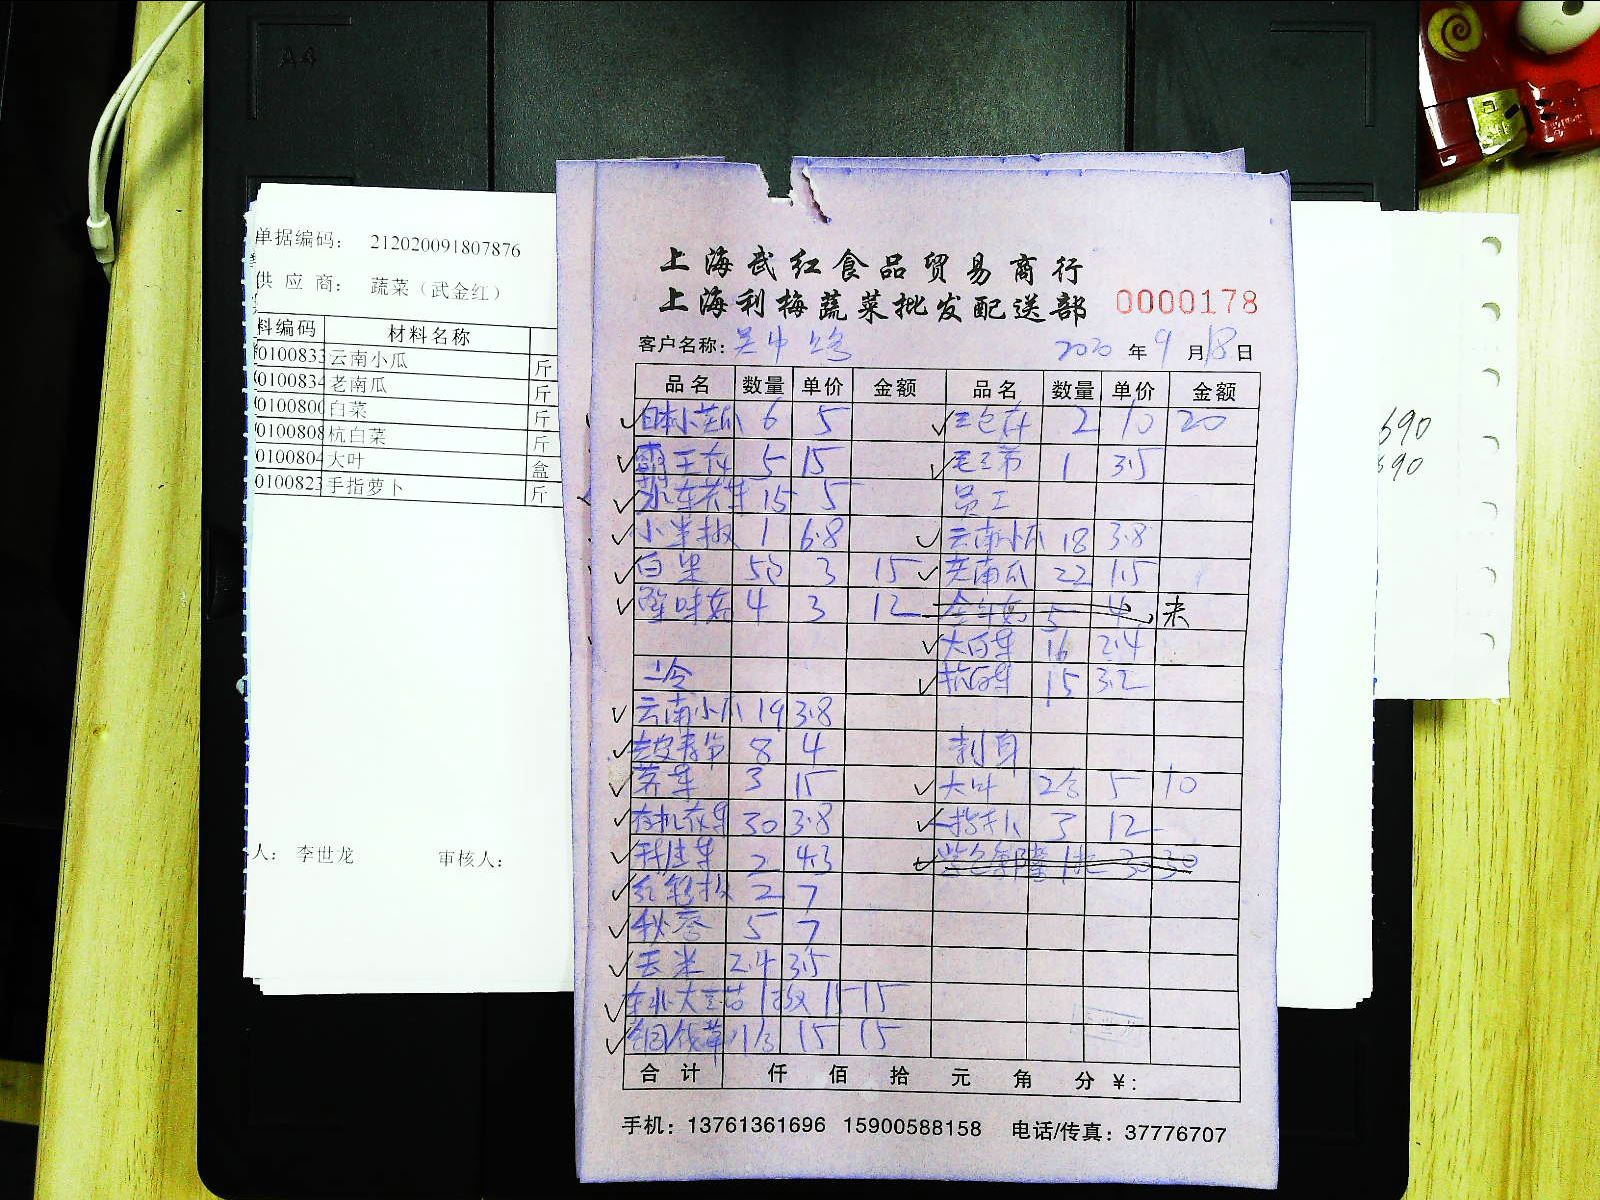 A4
单据编码： 212020091807876
供 应 商： 蔬菜（武金红）
料编码 材料名称
0100833 云南小瓜 斤
0100834 老南瓜 斤
0100800 白菜 斤
0100808 杭白菜 斤
0100804 大叶 盒
0100823 手指萝卜 斤
人： 李世龙 审核人：
上海武红食品贸易商行
上海利梅蔬菜批发配送部 0000178
客户名称：吴中路 2020 年 9 月 18 日
品名 数量 单价 金额 品名 数量 单价 金额
日本小黄瓜 6 5 2 10 20
5 15 1 3.5
15 5 员工
小米椒 1 6.8 云南小瓜 18 3.8
白果 5包 3 15 老南瓜 22 1.5
蟹味菇 4 3 12 5 4 未
大白菜 16 2.4
二令 杭白菜 15 3.2
云南小瓜 19 3.8
8 4 刺身
荠菜 3 15 大叶 2合 5 10
有机花菜 30 3.8 3 12
2 4.3 30 30
2 7
秋葵 5 7
玉米 2.4 3.5
15 15
15 15
合 计 仟 佰 拾 元 角 分 ¥：
手机：13761361696 15900588158 电话/传真：37776707
690
690